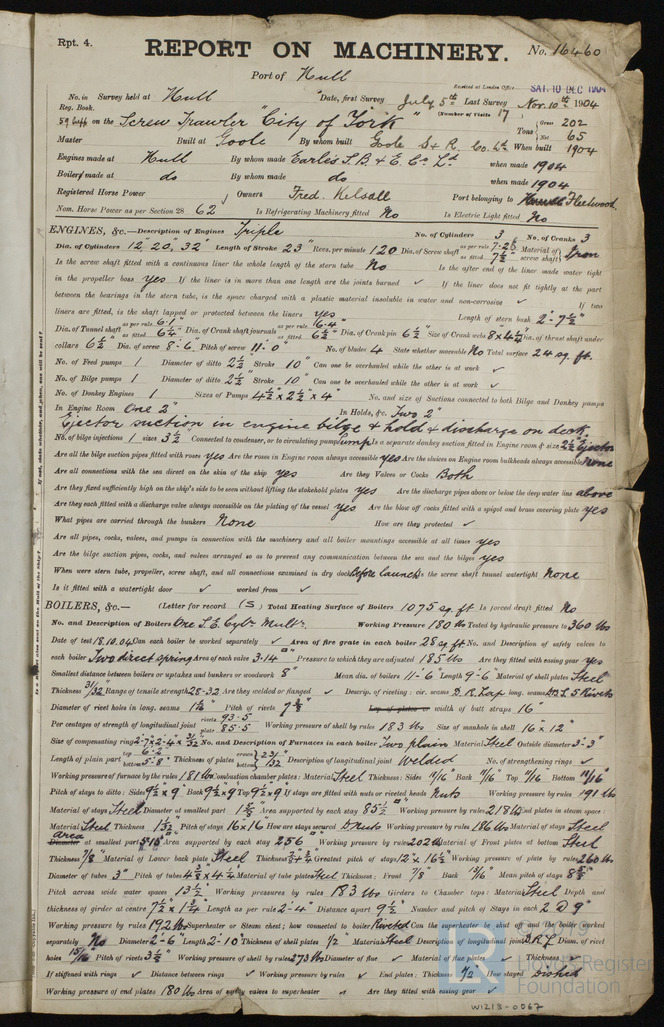 Rpt. 4.
REPORT ON MACHINERY.
No. 16460
Port of Hull
Received at London Office SAT. 10 DEC 1904
No. in Reg. Book. Survey held at Hull Date, first Survey July 5th Last Survey Nov. 10th 1904
(Number of Visits 17)
on the Screw Trawler "City of York" Tons { Gross 202 Net 65
Master Built at Goole By whom built Goole S & R. Co. Ld. When built 1904
Engines made at Hull By whom made Earle's S. B. & E. Co. Ld when made 1904
Boilers made at do By whom made do when made 1904
Registered Horse Power Owners Fred. Kelsall Port belonging to Fleetwood
Nom. Horse Power as per Section 28 62 Is Refrigerating Machinery fitted No Is Electric Light fitted No
ENGINES, &c.—Description of Engines Triple No. of Cylinders 3 No. of Cranks 3
Dia. of Cylinders 12" 20" 32" Length of Stroke 23" Revs. per minute 120 Dia. of Screw shaft as per rule 7.28 as fitted 7½" Material of screw shaft Iron
Is the screw shaft fitted with a continuous liner the whole length of the stern tube No Is the after end of the liner made water tight
in the propeller boss yes If the liner is in more than one length are the joints burned ✓ If the liner does not fit tightly at the part
between the bearings in the stern tube, is the space charged with a plastic material insoluble in water and non-corrosive ✓ If two
liners are fitted, is the shaft lapped or protected between the liners yes Length of stern bush 2'-7½"
Dia. of Tunnel shaft as per rule 6.1" as fitted 6¼" Dia. of Crank shaft journals as per rule 6.4" as fitted 6½" Dia. of Crank pin 6½" Size of Crank webs 8" x 4¼" Dia. of thrust shaft under
collars 6½" Dia. of screw 8'-6" Pitch of screw 11'-0" No. of blades 4 State whether moveable No Total surface 24 sq. ft.
No. of Feed pumps 1 Diameter of ditto 2½" Stroke 10" Can one be overhauled while the other is at work ✓
No. of Bilge pumps 1 Diameter of ditto 2½" Stroke 10" Can one be overhauled while the other is at work ✓
No. of Donkey Engines 1 Sizes of Pumps 4½" x 2½" x 4" No. and size of Suctions connected to both Bilge and Donkey pumps
In Engine Room One 2" In Holds, &c. Two 2"
Ejector suction in engine bilge & hold & discharge on deck
No. of bilge injections 1 sizes 3½ Connected to condenser, or to circulating pump Pump Is a separate donkey suction fitted in Engine room & size 2½" Ejector
Are all the bilge suction pipes fitted with roses yes Are the roses in Engine room always accessible yes Are the sluices on Engine room bulkheads always accessible None
Are all connections with the sea direct on the skin of the ship yes Are they Valves or Cocks Both
Are they fixed sufficiently high on the ship's side to be seen without lifting the stokehold plates yes Are the discharge pipes above or below the deep water line above
Are they each fitted with a discharge valve always accessible on the plating of the vessel yes Are the blow off cocks fitted with a spigot and brass covering plate yes
What pipes are carried through the bunkers None How are they protected ✓
Are all pipes, cocks, valves, and pumps in connection with the machinery and all boiler mountings accessible at all times yes
Are the bilge suction pipes, cocks, and valves arranged so as to prevent any communication between the sea and the bilges yes
When were stern tube, propeller, screw shaft, and all connections examined in dry dock Before launch Is the screw shaft tunnel watertight None
Is it fitted with a watertight door ✓ worked from ✓
BOILERS, &c.— (Letter for record (S)) Total Heating Surface of Boilers 1075 sq. ft Is forced draft fitted No
No. and Description of Boilers One S. E. Cyl. Mult. Working Pressure 180 lbs Tested by hydraulic pressure to 360 lbs
Date of test 18.10.04 Can each boiler be worked separately ✓ Area of fire grate in each boiler 28 sq. ft No. and Description of safety valves to
each boiler Two direct spring Area of each valve 3.14 □" Pressure to which they are adjusted 185 lbs Are they fitted with easing gear yes
Smallest distance between boilers or uptakes and bunkers or woodwork 8" Mean dia. of boilers 11'-6" Length 9'-6" Material of shell plates Steel
Thickness 31/32 Range of tensile strength 28-32 Are they welded or flanged ✓ Descrip. of riveting: cir. seams D. R. Lap long. seams D.B.S. 5 Rivets
Diameter of rivet holes in long. seams Pitch of rivets width of butt straps 16"
Per centages of strength of longitudinal joint rivets 93.5 plate 85.5 Working pressure of shell by rules 183 lbs Size of manhole in shell 16" x 12"
Size of compensating ring No. and Description of Furnaces in each boiler Two plain Material Steel Outside diameter 3'-3"
Length of plain part top 6'-2" bottom 5'-8" Thickness of plates crown bottom 23/32" Description of longitudinal joint Welded No. of strengthening rings ✓
Working pressure of furnace by the rules 181 lbs Combustion chamber plates: Material Steel Thickness: Sides 11/16" Back 11/16" Top 11/16" Bottom 11/16"
Pitch of stays to ditto: Sides 9½" x 9" Back 9½" x 9" Top 9½" x 9" If stays are fitted with nuts or riveted heads Nuts Working pressure by rules 191 lbs
Material of stays Steel Diameter at smallest part Area supported by each stay 85½ □" Working pressure by rules 218 lbs End plates in steam space:
Material Steel Thickness 1 3/32" Pitch of stays 16" x 16" How are stays secured D Nuts Working pressure by rules 186 lbs Material of stays Steel
Area at smallest part Area supported by each stay 256 □" Working pressure by rules 202 lbs Material of Front plates at bottom Steel
Thickness 7/8 Material of Lower back plate Steel Thickness Greatest pitch of stays 12" x 16½" Working pressure of plate by rules 260 lbs
Diameter of tubes 3" Pitch of tubes 4⅜" x 4¼" Material of tube plates Steel Thickness: Front 7/8" Back 13/16" Mean pitch of stays
Pitch across wide water spaces 13½" Working pressures by rules 183 lbs Girders to Chamber tops: Material Steel Depth and
thickness of girder at centre 7½" x 1¾" Length as per rule 2'-4" Distance apart 9½" Number and pitch of Stays in each 2 @ 9"
Working pressure by rules 192 lbs Superheater or Steam chest; how connected to boiler Riveted Can the superheater be shut off and the boiler worked
separately No Diameter 2'-6" Length 2'-10" Thickness of shell plates 1/2 Material Steel Description of longitudinal joint D. R. L. Diam. of rivet
holes 15/16" Pitch of rivets 3½" Working pressure of shell by rules 273 lbs Diameter of flue ✓ Material of flue plates ✓ Thickness ✓
If stiffened with rings ✓ Distance between rings ✓ Working pressure by rules ✓ End plates: Thickness 1/2 How stayed Dished
Working pressure of end plates 180 lbs Area of safety valves to superheater ✓ Are they fitted with easing gear ✓
Lloyd's Register
Foundation
W1213-0067